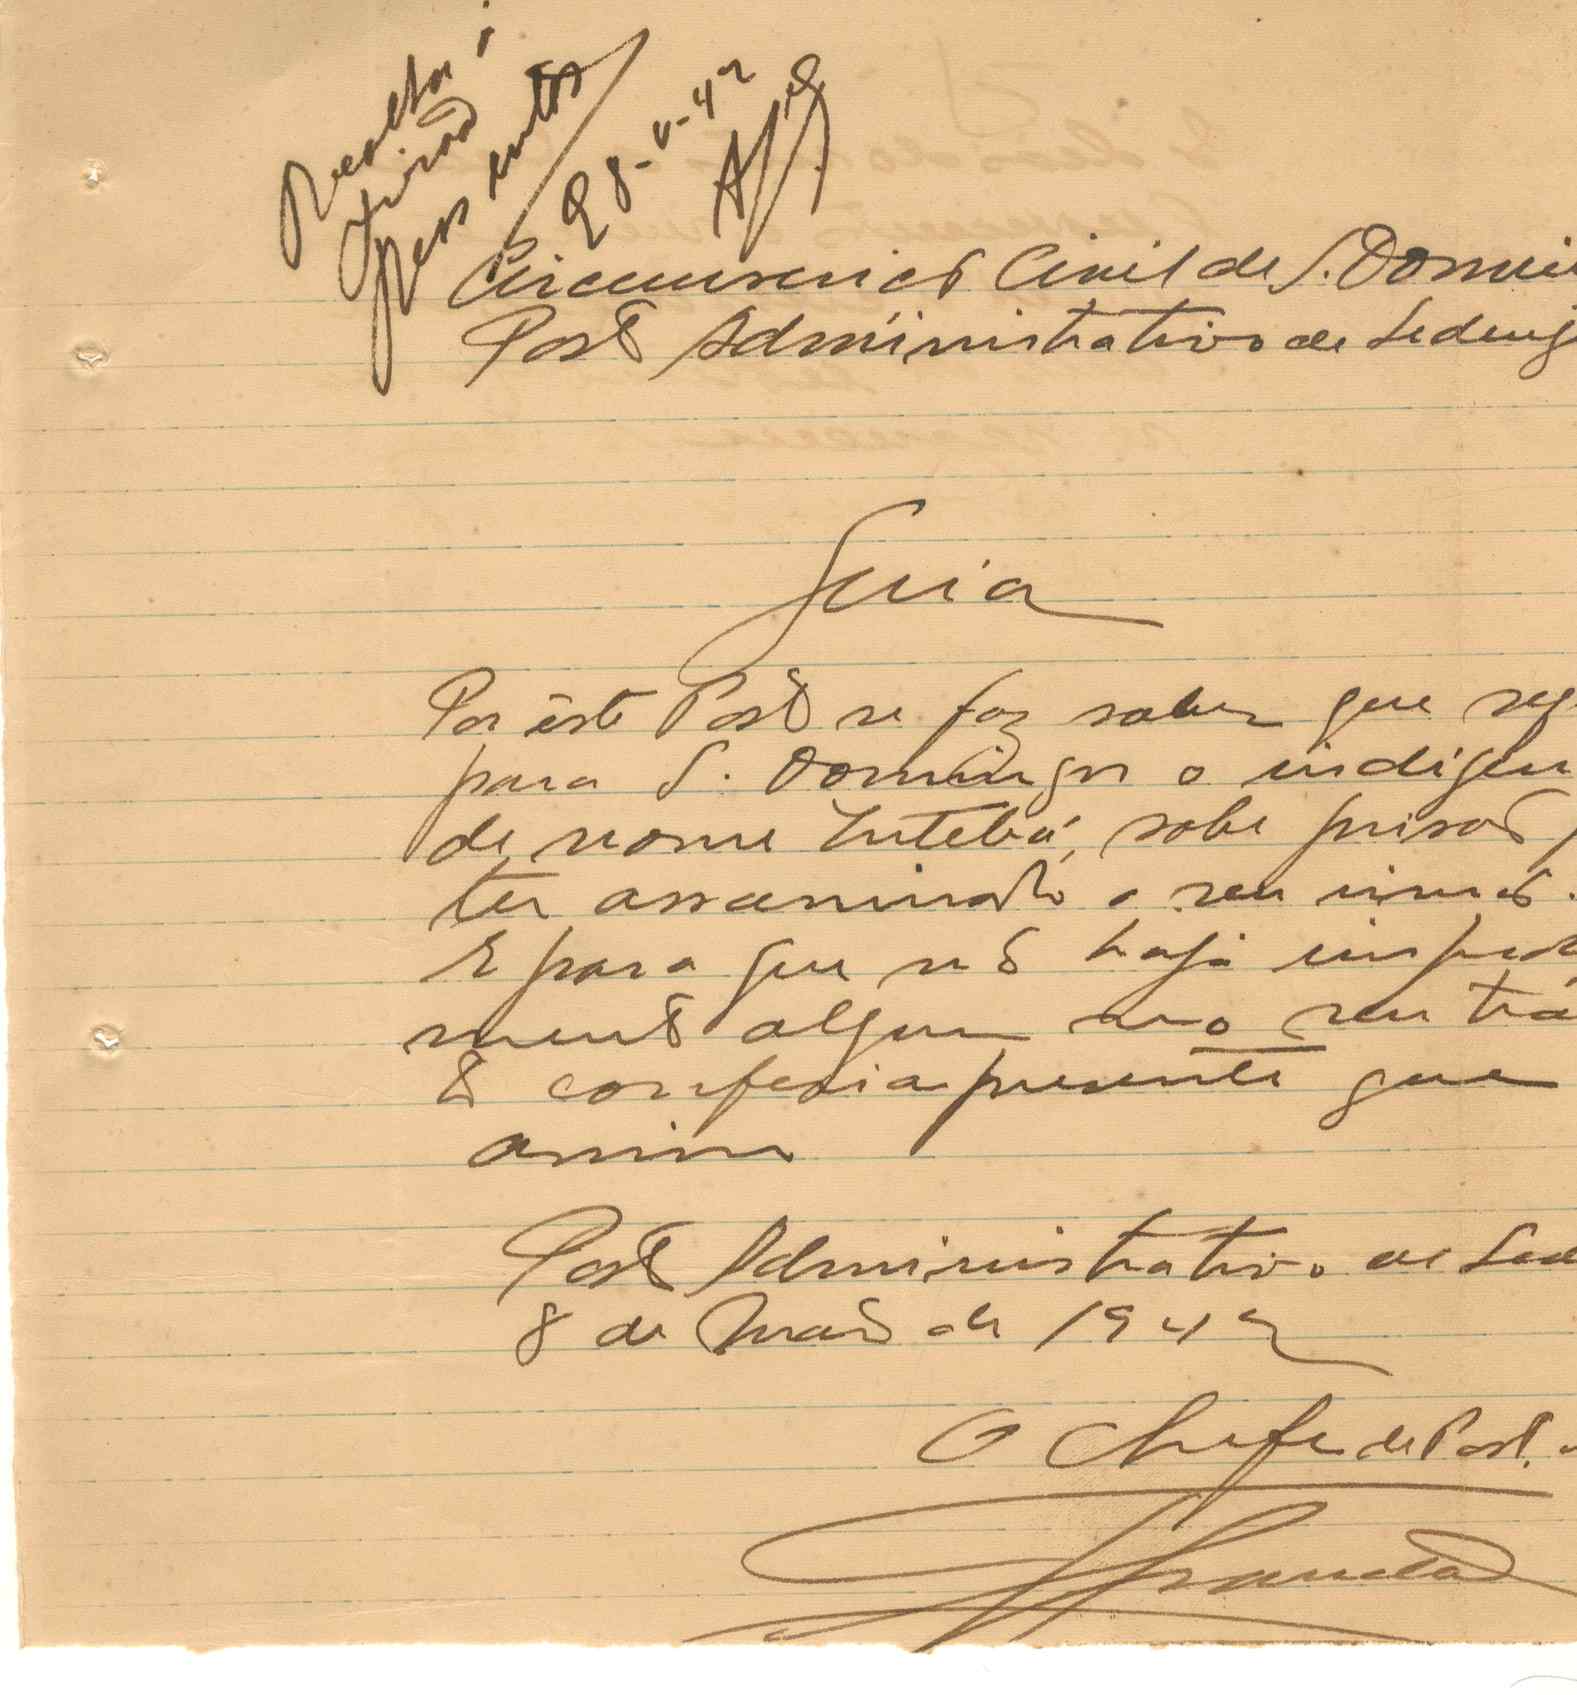 28-V-42
Circunscrição Civil de S. Domin
Posto Administrativo de Sedeng
Guia
Por êste Posto se faz saber que seg
para S. Domingos o indigen
de nome Intebá, sobe prisão p
ter assassinado o seu irmão.
E para que não haja impedi
mento algum no seu trá
to conferi a presente que
assino
Posto Administrativo de Sed
8 de Maio de 1942
O Chefe de Posto